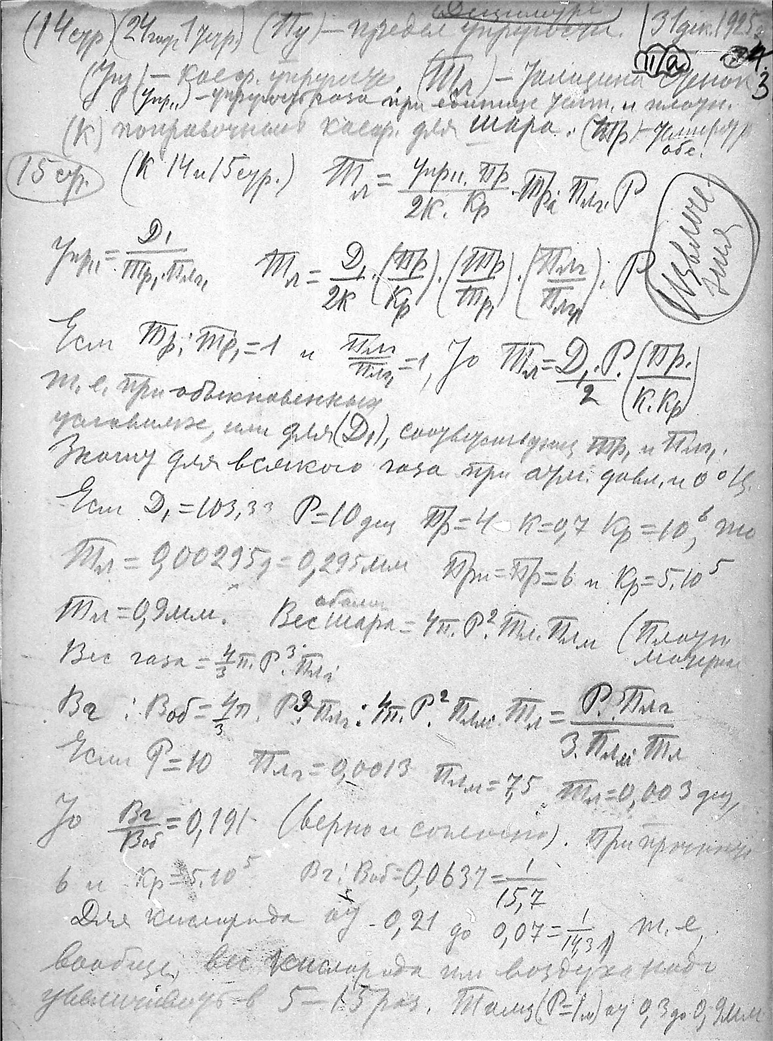 Дециметре
(14 стр) (24 гор. 1 устр.) (Пу) – предел упругости. 31 дек. 1925 г.
(Упр) – коеф. упругости (Тл) – Толщина стенок
II a 34.3
(Упр₁) – упругость газа при единице темп. и плотн.
(К) поправочный коеф. для шара. (Тр) – Температур абс.
15 стр. (К 14 и 15 стр.) Тл = Упр₁. Пр / 2К. Кр . Тр. Плг. Р
Извлечения
Упр₁ = D₁ / Тр₁. Плг₁ Тл = D₁/2К . (Пр/Кр) . (Тр/Тр₁) . (Плг/Плг₁) . Р
Если Тр : Тр₁ = 1 и Плг/Плг₁ = 1, То Тл = D₁. Р./2 (Пр./К. Кр)
т. е. при обыкновенных
условиях, или для (D₁), соответствующ Тр₁ и Плг₁.
Этому для всякого газа при атм. давл. и 0° Ц.
Если D₁ = 103,33 Р = 10 дец Пр = 4 К = 0,7 Кр = 10⁶, то
Тл = 0,00295 д = 0,295 мм При = Пр = 6 и Кр = 5.10⁵
Тл = 0,9 мм. Вес оболи шара = 4п. Р². Тл. Плм (Плотн. матери
Вес газа = 4/3 п. Р³. Плг
Вг : Воб = 4/3 п. Р³. Плг : 4п. Р² Плм. Тл = Р. Плг / 3. Плм. Тл
Если Р = 10 Плг = 0,0013 Плм = 7,5 Тл = 0,003 дец,
То Вг/Воб = 0,191 (верно и сочтено). При прочност
6 и Кр = 5.10⁵ Вг : Воб = 0,0637 = 1/15,7
Для кислорода от 0,21 до 0,07 = 1/14,3, т. е,
вообще, вес кислорода или воздуха надо
увеличивать в 5 – 15 раз. Толщ (Р = 1м) от 0,3 до 0,9 мм